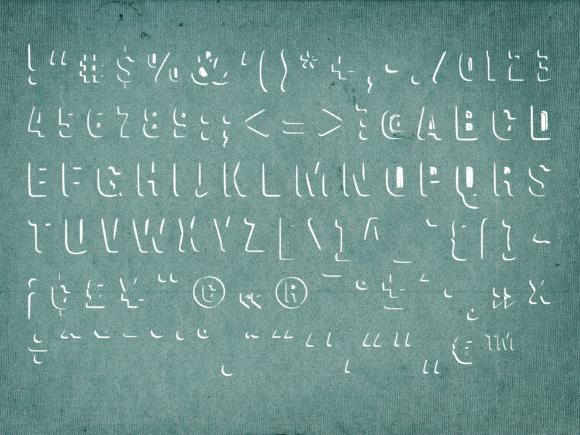 ! " # $ % & ' ( ) * + , - . / 0 1 2 3
4 5 6 7 8 9 : ; < = > ? @ A B C D
E F G H I J K L M N O P Q R S
T U V W X Y Z [ \ ] ^ _ ` { | } ~
¡ ¢ £ ¥ ¨ © « ® ¯ ° ± ´ · ¸ » ×
÷ “ ” „ € ™